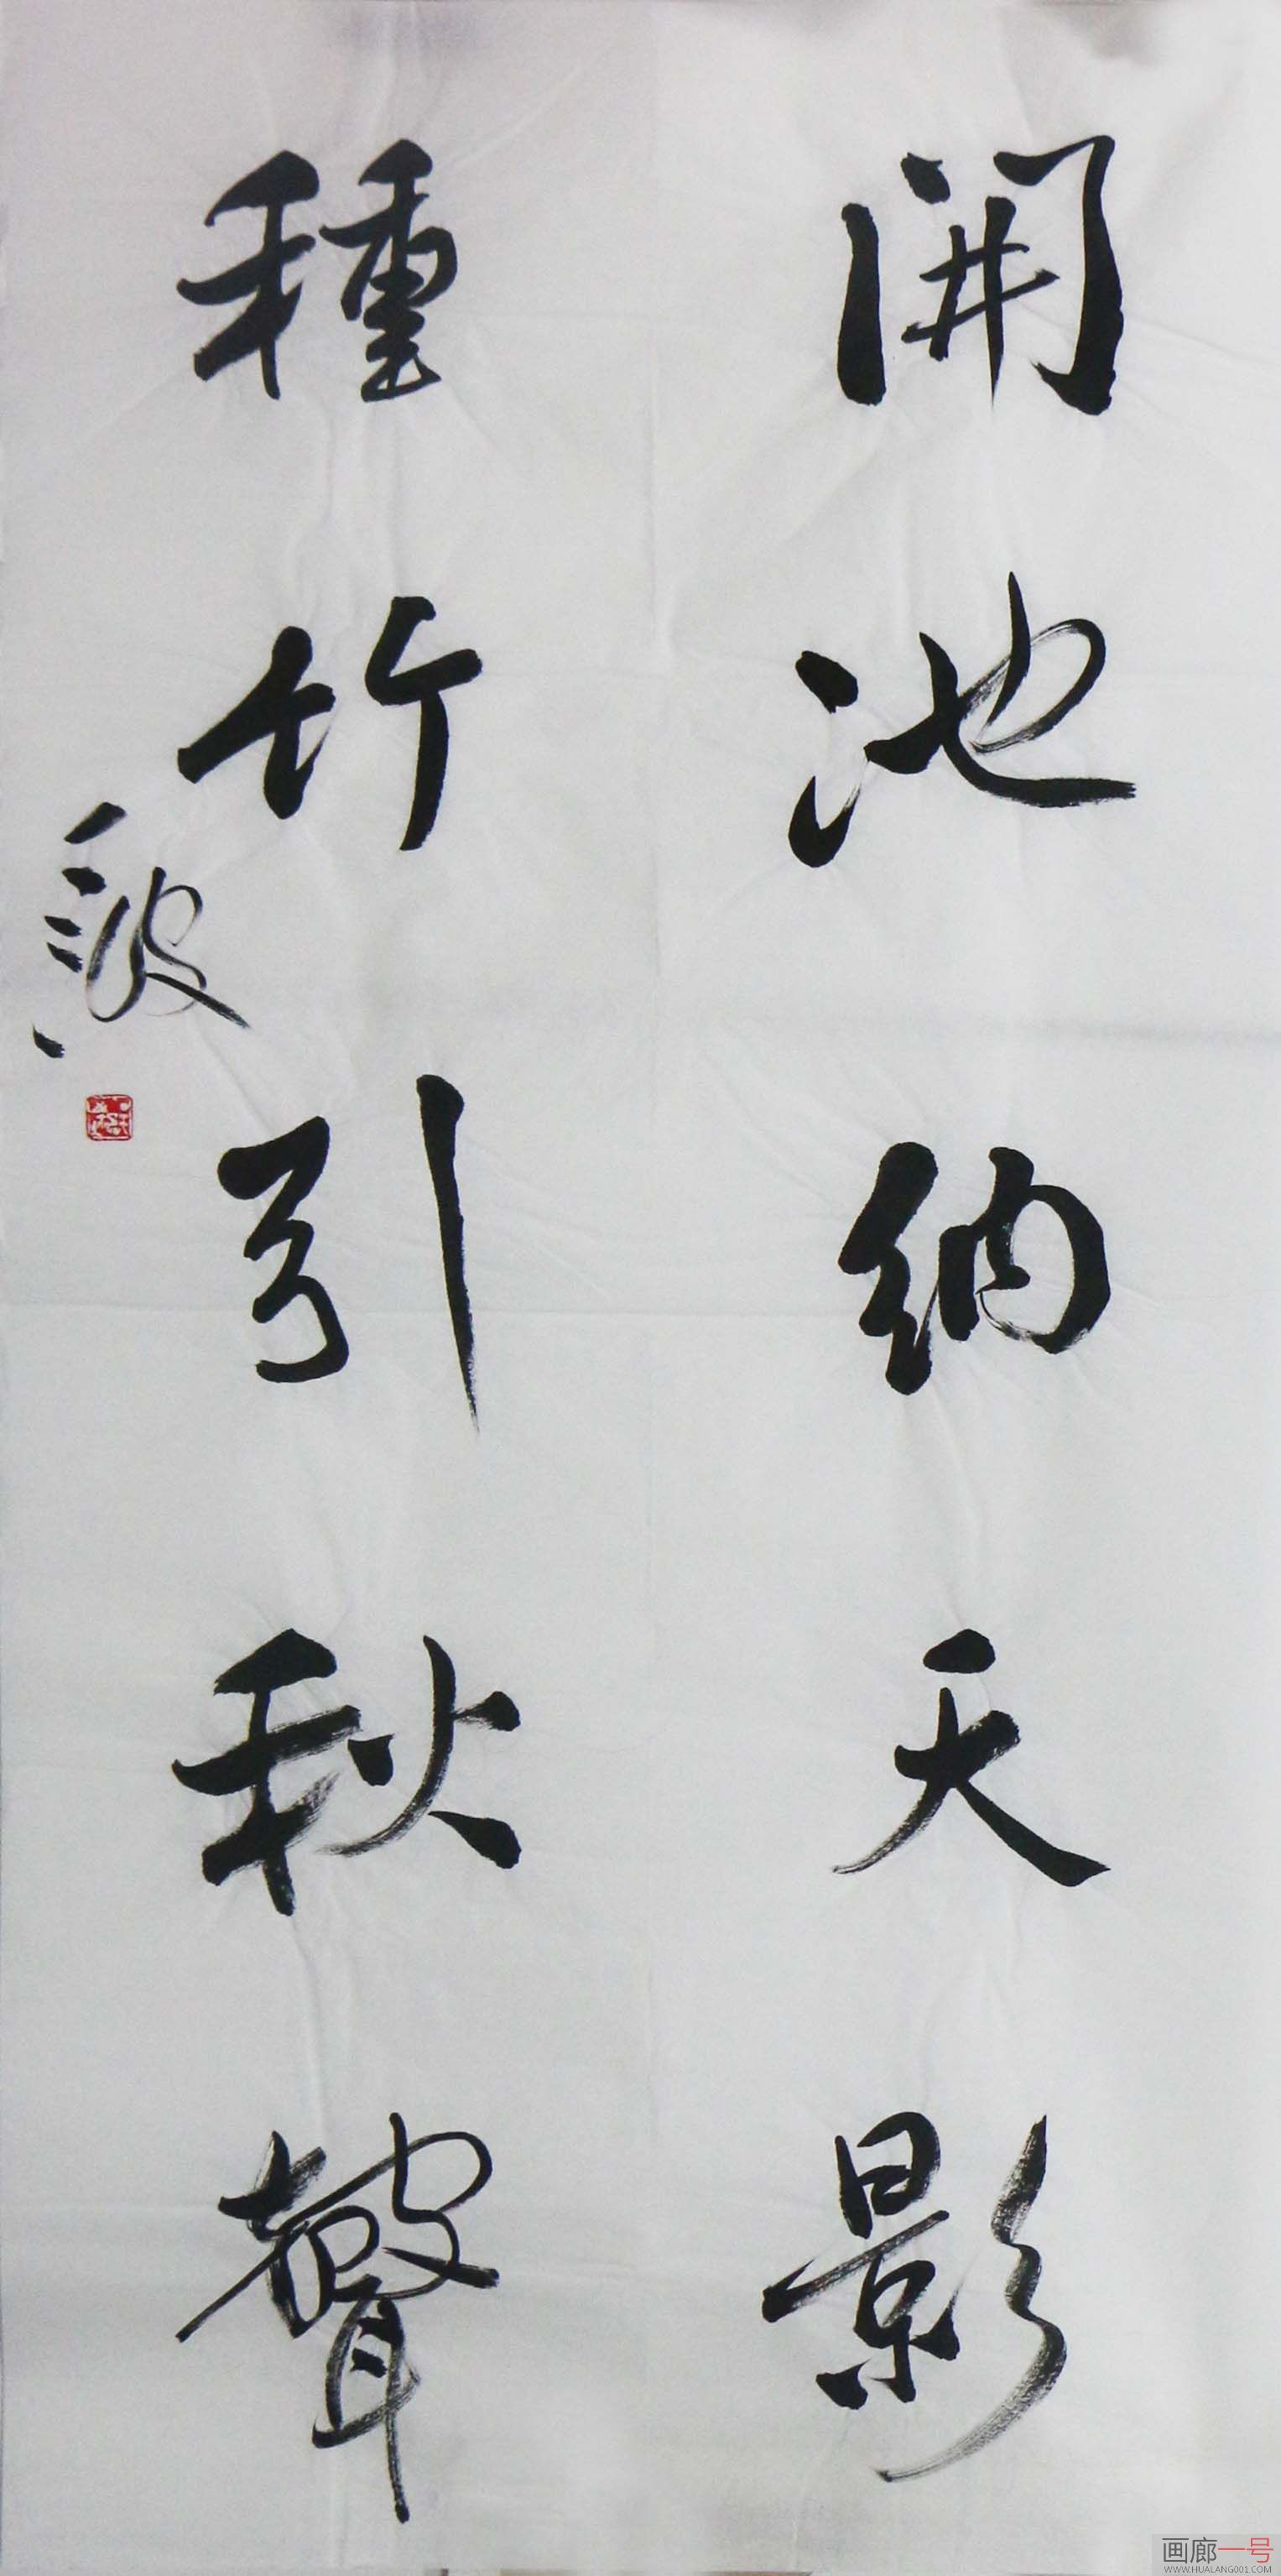 開池納天影
種竹引秋聲
画廊一号
WWW.HUALANG001.COM